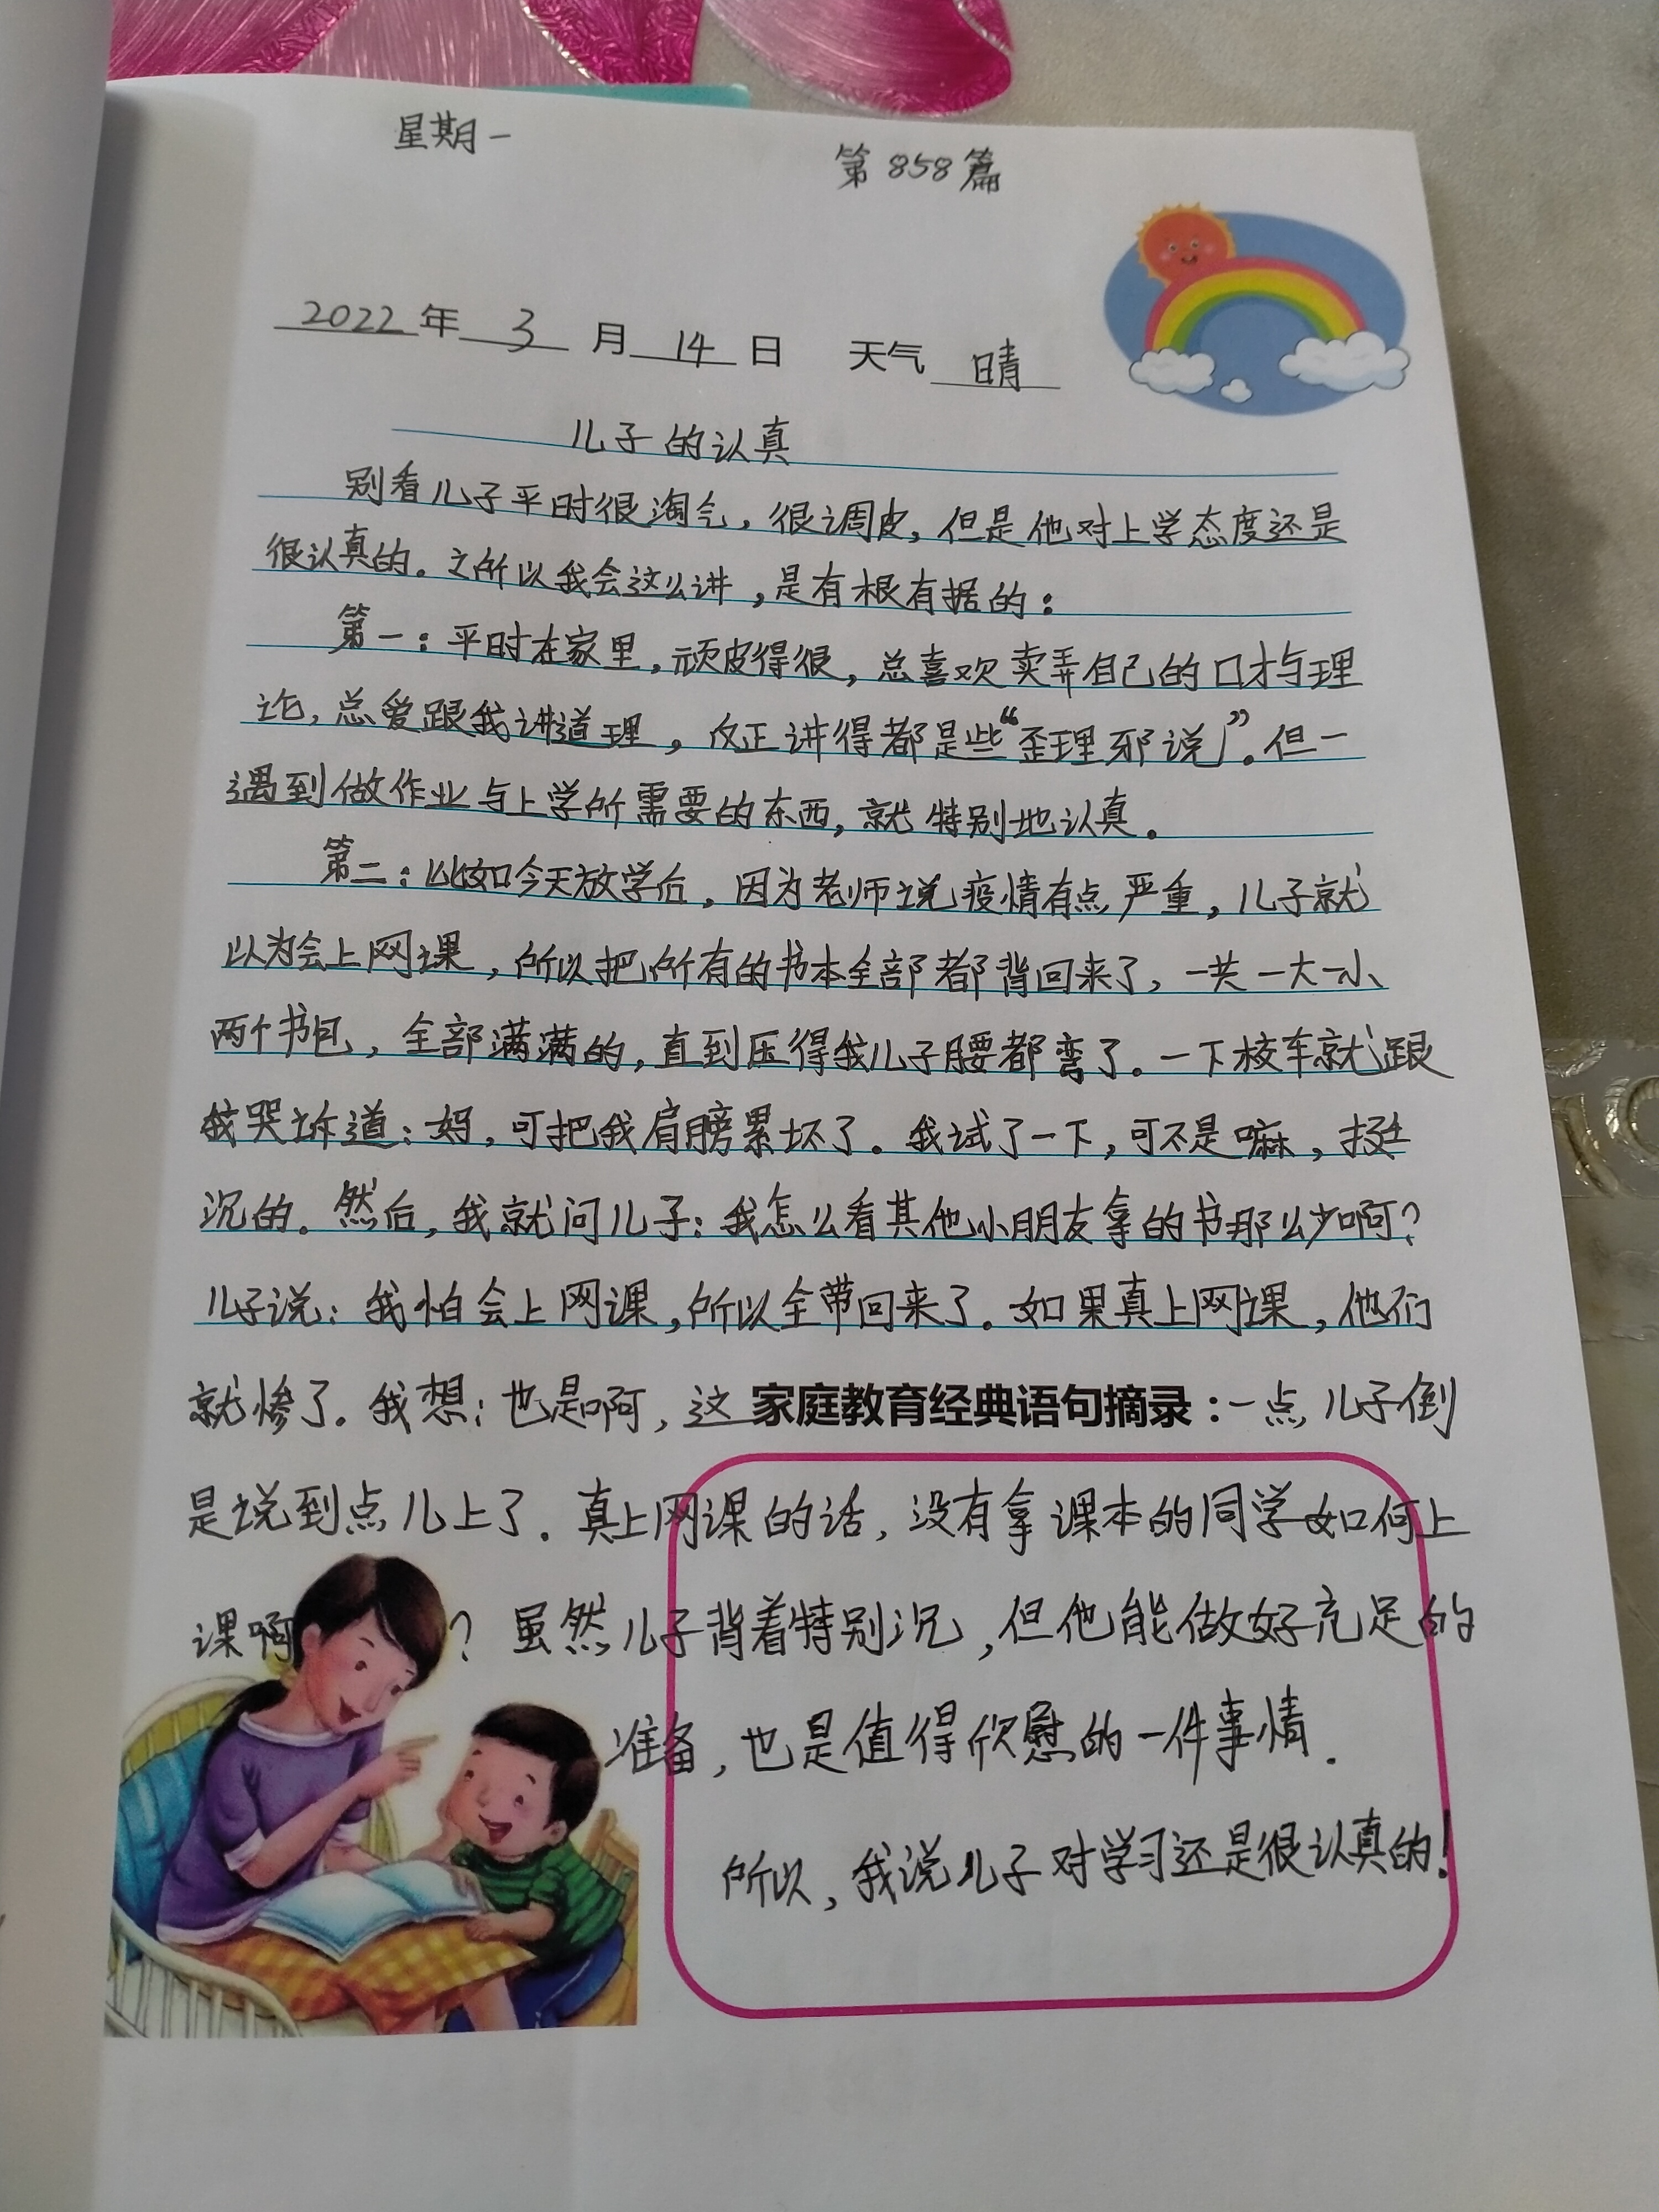 星期一
第858篇
2022年3月14日 天气 晴
儿子的认真
别看儿子平时很淘气，很调皮，但是他对上学态度还是
很认真的。之所以我会这么讲，是有根有据的：
第一：平时在家里，顽皮得很，总喜欢卖弄自己的口才与理
论，总爱跟我讲道理，反正讲得都是些“歪理邪说”。但一
遇到做作业与上学所需要的东西，就特别地认真。
第二：比如今天放学后，因为老师说疫情有点严重，儿子就
以为会上网课，所以把所有的书本全部都背回来了，一共一大一小
两个书包，全部满满的，直到压得我儿子腰都弯了。一下校车就跟
我哭诉道：妈，可把我肩膀累坏了。我试了一下，可不是嘛，挺
沉的。然后，我就问儿子：我怎么看其他小朋友拿的书那么少啊？
儿子说：我怕会上网课，所以全带回来了。如果真上网课，他们
就惨了。我想：也是啊，这 家庭教育经典语句摘录：一点儿子倒
是说到点儿上了。真上网课的话，没有拿课本的同学如何上
课啊？虽然儿子背着特别沉，但他能做好充足的
准备，也是值得欣慰的一件事情。
所以，我说儿子对学习还是很认真的！